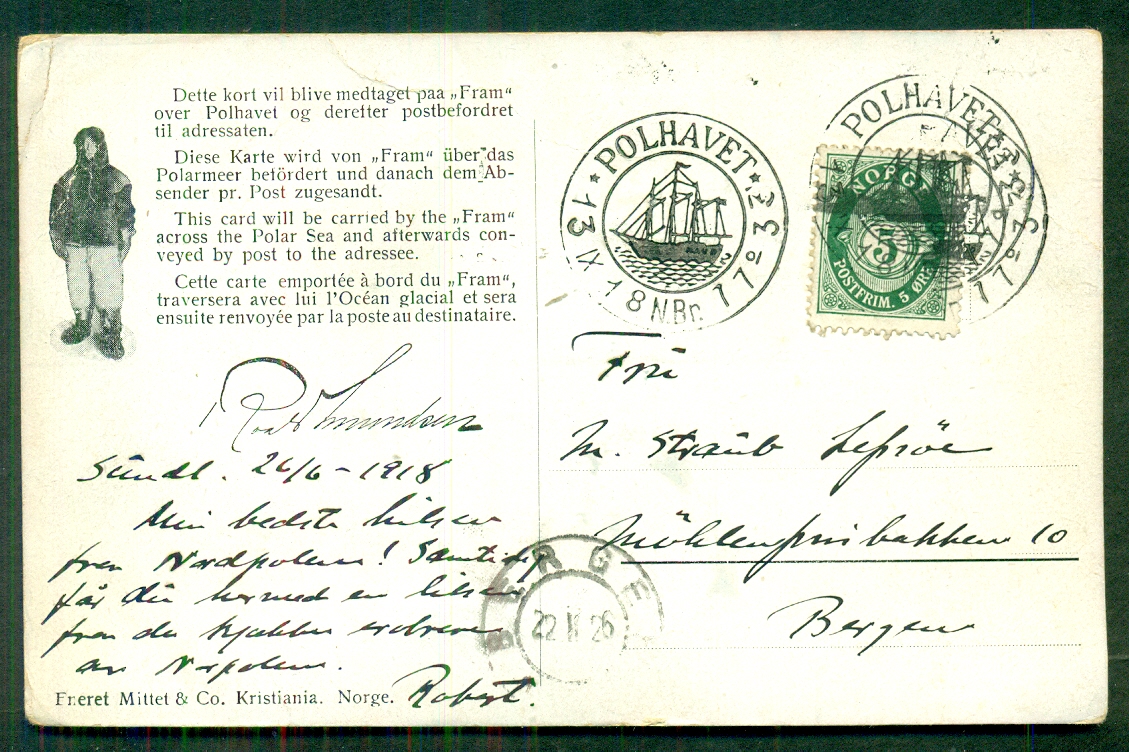 Dette kort vil blive medtaget paa „Fram“
over Polhavet og derefter postbefordret
til adressaten.
Diese Karte wird von „Fram“ über das
Polarmeer befördert und danach dem Ab-
sender pr. Post zugesandt.
This card will be carried by the „Fram“
across the Polar Sea and afterwards con-
veyed by post to the adressee.
Cette carte emportée à bord du „Fram“,
traversera avec lui l'Océan glacial et sera
ensuite renvoyée par la poste au destinataire.
Roald Amundsen
26/6 - 1918
Min bedste hilsen
fra Nordpolen! Samtidig
får du hermed en hilsen
fra den erobrere
av Nordpolen.
Robert.
Eneret Mittet & Co. Kristiania. Norge.
POLHAVET
13 IX 18 N.Br. 77º 33
POLHAVET
33 77º
NORGE
5
POSTFRIM. 5 ØRE
Fru
M. Straub
Möhlenprisbakken 10
Bergen
BERGEN
22 II 26